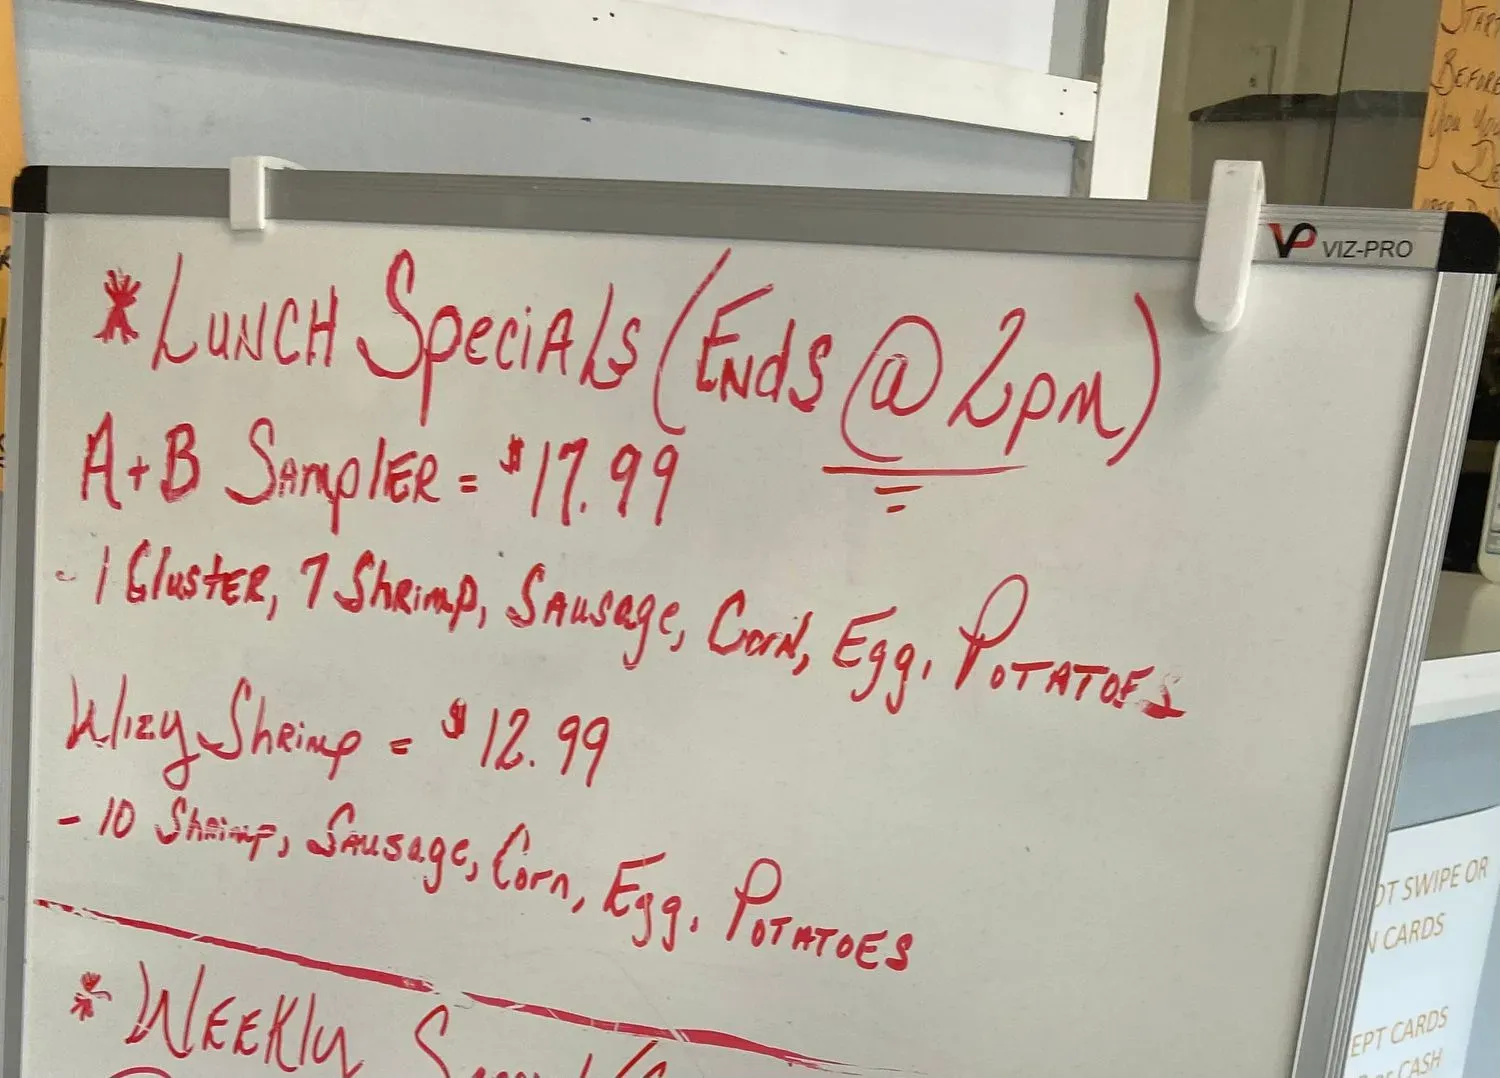 * LUNCH SpeciAls (Ends @ 2pm)
A+B SAmplER = $17.99
- 1 ClusTER, 7 ShRimp, SAusage, Corn, Egg, PoTATOES
Wizy ShRimp = $12.99
- 10 ShRimp, SAusage, Corn, Egg, PoTATOES
* WEEKly
VIZ-PRO
START
BEFORE
You
SWIPE OR
CARDS
CARDS
CASH